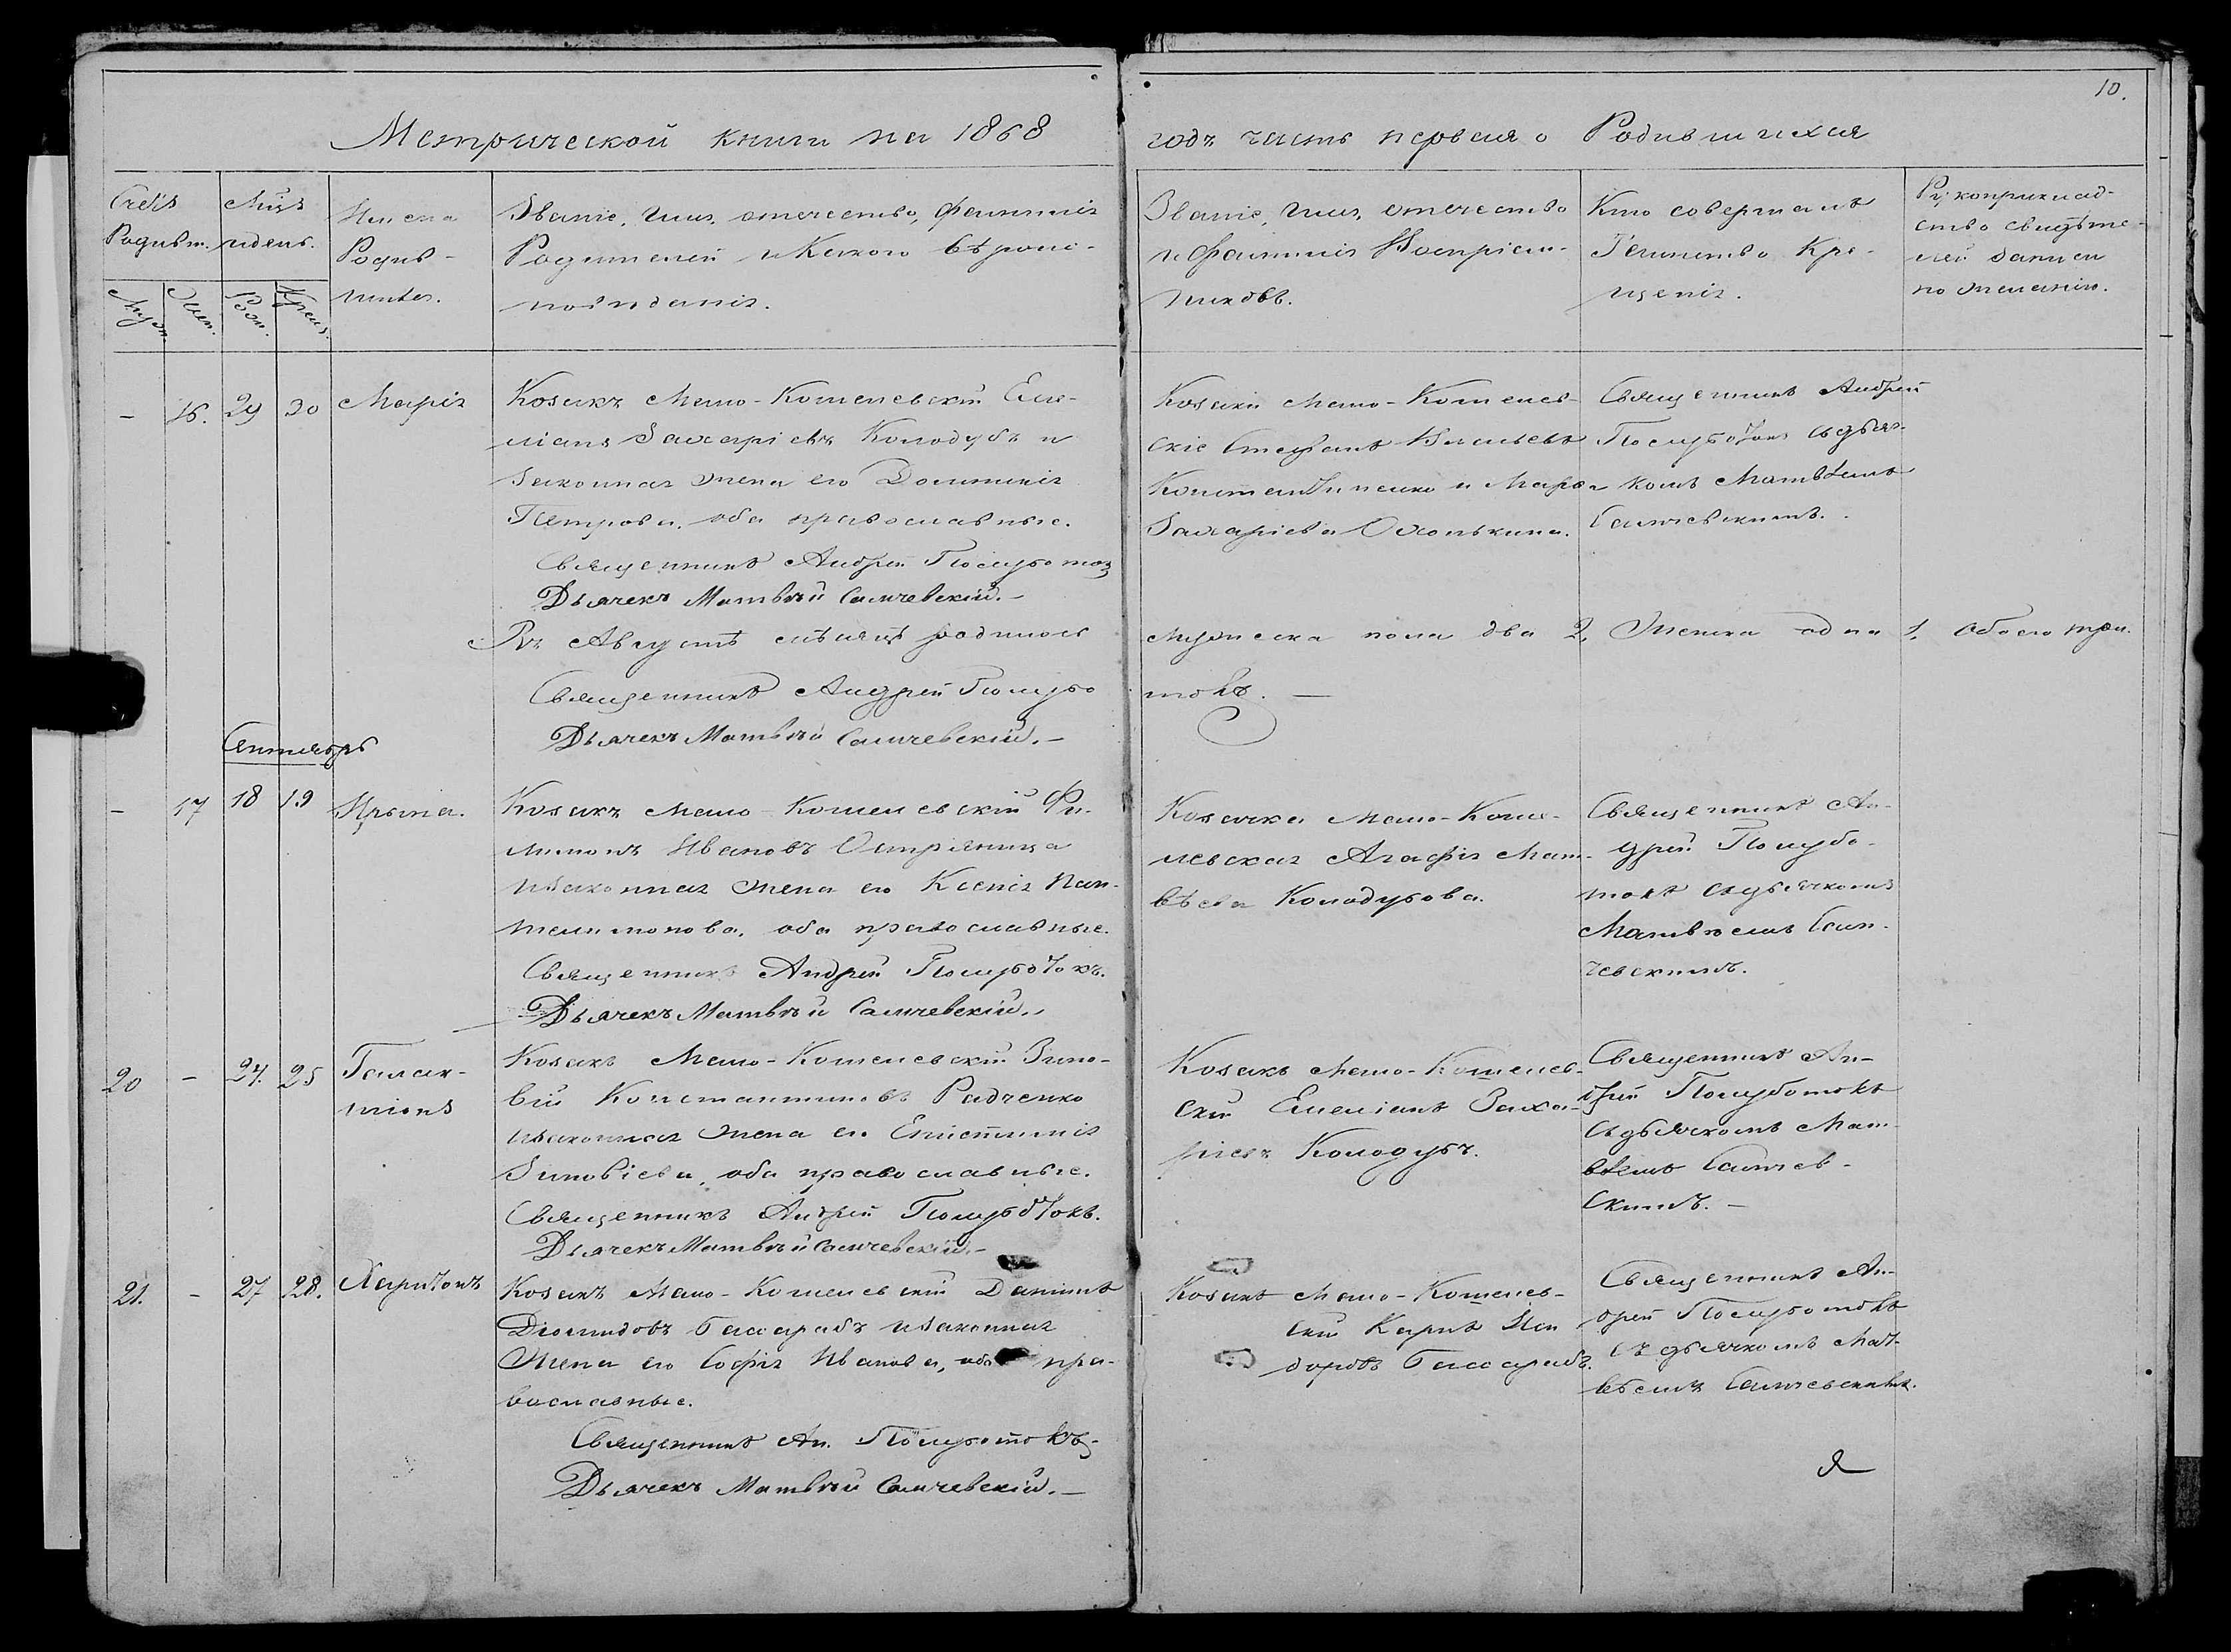 10.
Метрической книги на 1868
годъ часть первая о Родившихся
Счетъ Родивш.
Мѣсяцъ и день.
Муж.
Жен.
Рож.
Крещ.
Имена
Родив-
шихся.
Званіе, имя, отечество, фамилія
Родителей и Какого вѣроис-
повѣданія.
Званіе, имя, отечество
и Фамилія Воспріем-
никовъ.
Кто совершалъ
Таинство Кре-
щенія.
Рукоприклад-
ство свидѣте-
лей записи
по желанію.
– 16. 29 30 Марія
Козакъ Мало-Кошелевскій Еме-
ліанъ Захаріевъ Колодубъ и
законная жена его Домникія
Петрова, оба православные.
Священникъ Андрей Полуботок
Дьячекъ Матвѣй Самчевскій.–
Козаки Мало-Кошелев-
скіе Стефанъ Васильевъ
Константиненко и Марѳа
Захаріева Охонькина.
Священникъ Андрей
Полуботокъ съ дьяч-
комъ Матвѣемъ
Самчевскимъ.
Въ Августѣ мѣсяцѣ родилось
мужеска пола два 2, Женска одна 1, Обоего три.
Священникъ Андрей Полубо
токъ. –
Дьячекъ Матвѣй Самчевскій.–
Сентябрь
– 17 18 19 Ирына.
Козакъ Мало-Кошелевскій Фи-
лимонъ Ивановъ Остряница
и законная жена его Ксенія Пан-
телимонова, оба православные.
Священникъ Андрей Полуботокъ.
Дьячекъ Матвѣй Самчевскій.
Козачка Мало-Коше-
левская Агафія Мат-
вѣева Колодубова.
Священникъ Ан-
дрей Полубо-
токъ съ дьячкомъ
Матвѣемъ Сам-
чевскимъ.
20 – 24. 25 Галак-
тіонъ
Козакъ Мало-Кошелевскій Зино-
вій Константиновъ Радченко
и законная жена его Епистимія
Зиновіева, оба православные.
Священникъ Андрей Полуботокъ.
Дьячекъ Матвѣй Самчевскій.–
Козакъ Мало-Кошелев-
скій Емеліанъ Заха-
ріевъ Колодубъ.
Священникъ Ан-
дрей Полуботокъ
съ дьячкомъ Мат-
вѣемъ Самчев-
скимъ. –
21. – 27 28. Харитонъ
Козакъ Мало-Кошелевскій Даніилъ
Діомидовъ Бассарабъ и законная
Жена его Софія Иванова, оба пра-
вославные.
Священникъ Ан. Полуботокъ
Дьячекъ Матвѣй Самчевскій.–
Козакъ Мало-Кошелев-
скій Карпъ Иси
доровъ Бассарабъ.
Священникъ Ан-
дрей Полуботокъ
съ дьячкомъ Мат-
вѣемъ Самчевскимъ.